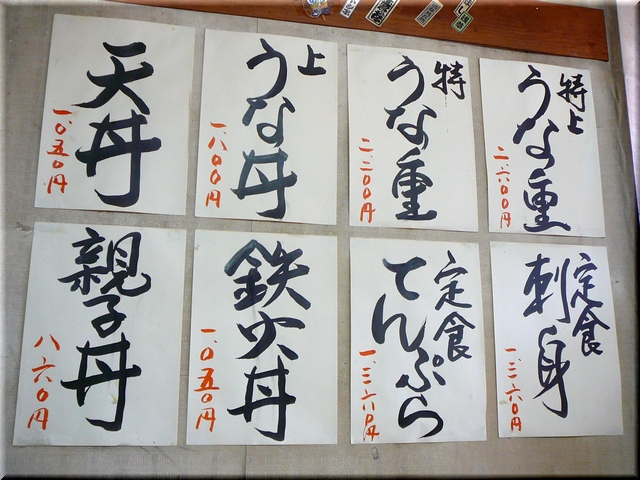 特上
うな重
二、六〇〇円
特
うな重
二、二〇〇円
上
うな丼
一、八〇〇円
天丼
一〇五〇円
定食
刺身
一、二六〇円
定食
てんぷら
一、二六〇円
鉄火丼
一、〇五〇円
親子丼
八六〇円